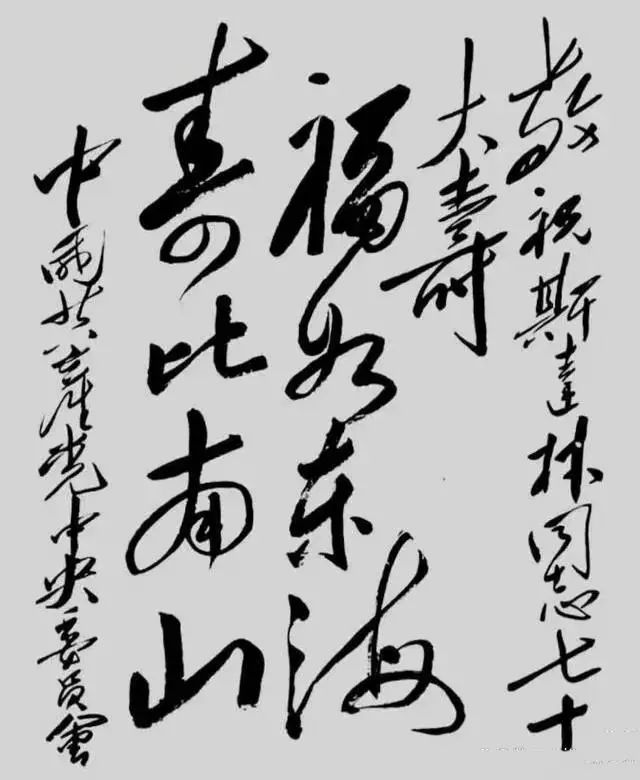 敬祝斯達林同志七十
大壽
福如东海
寿比南山
中国共產党中央委員會